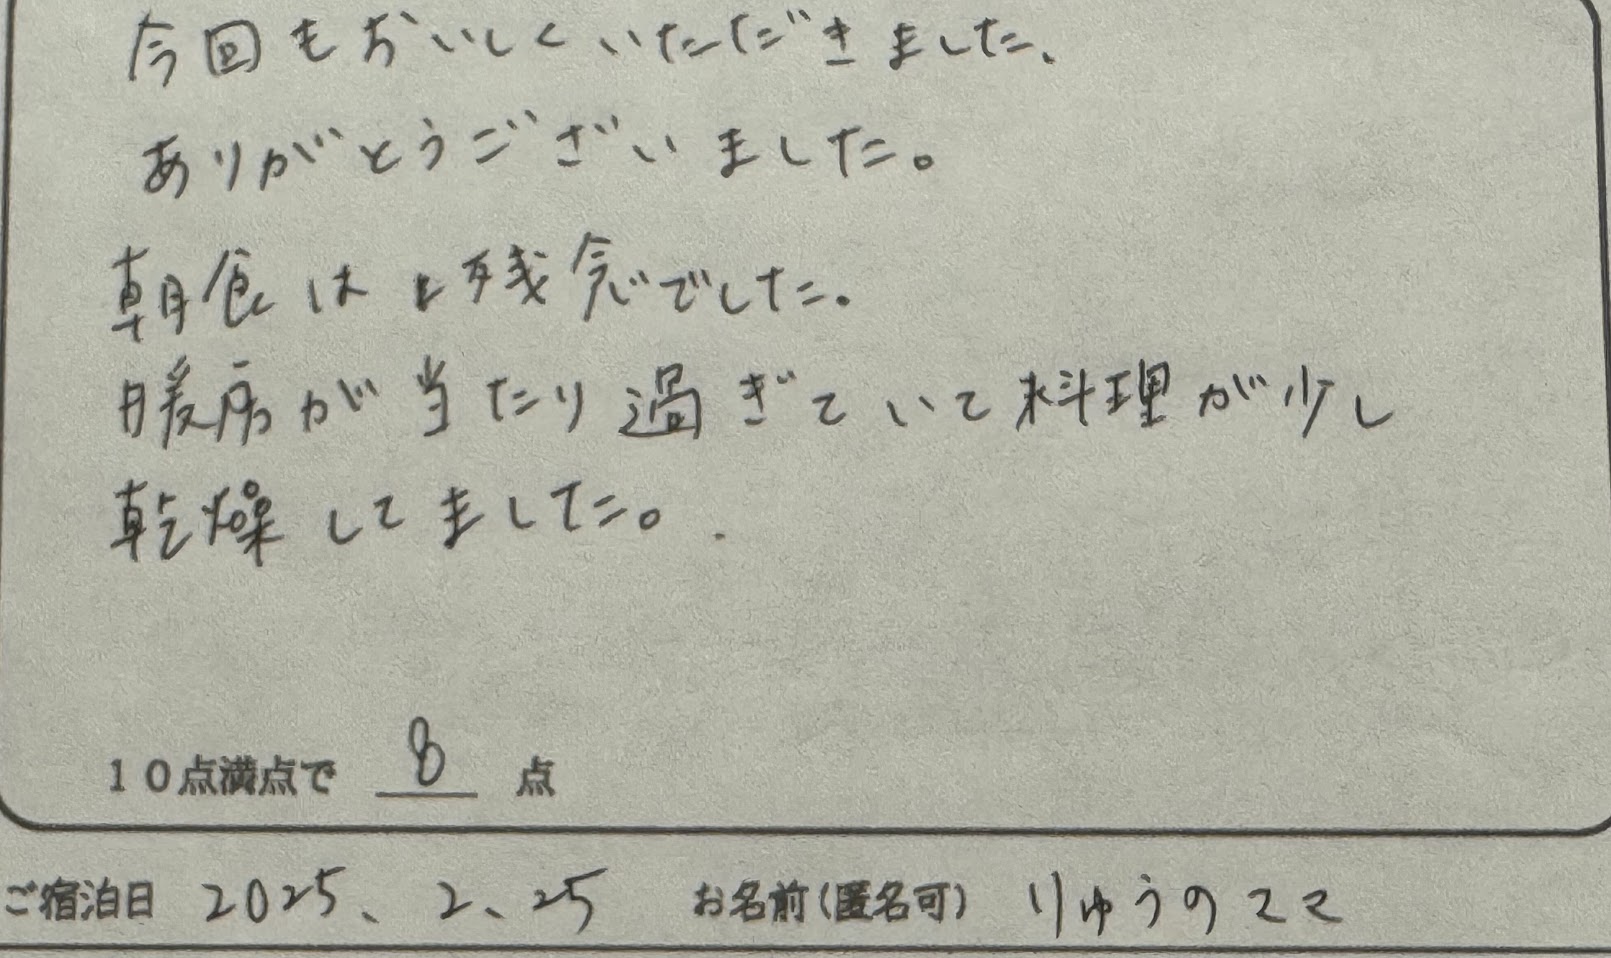 今回もおいしくいただきました、
ありがとうございました。
朝食は残念でした。
暖房が当たり過ぎていて料理が少し
乾燥してました。
10点満点で 8 点
ご宿泊日 2025、2、25 お名前(匿名可) りゅうのママ